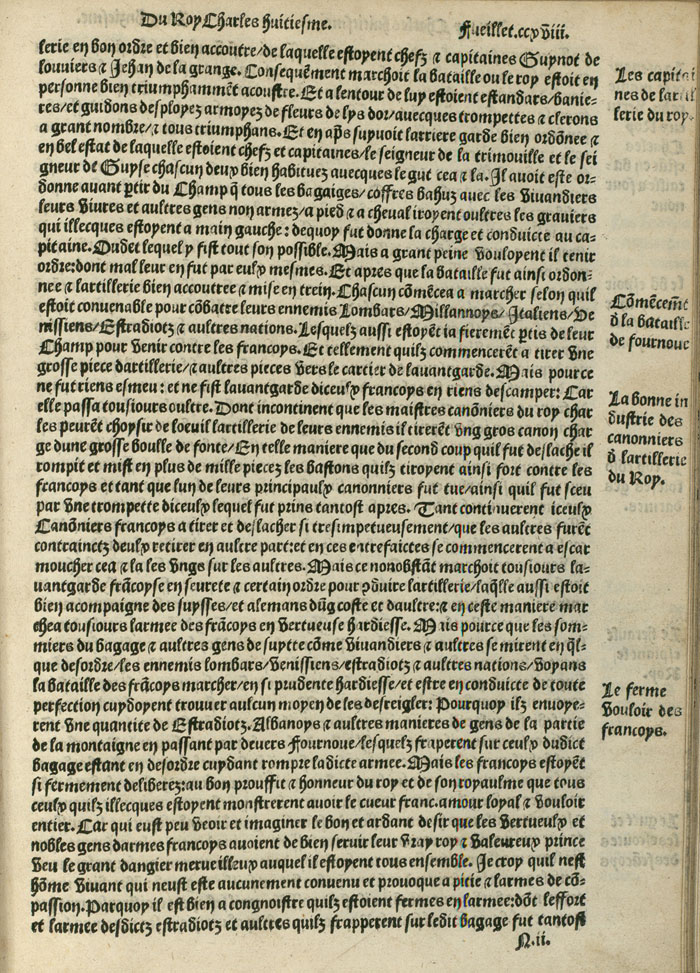 Du Roy Charles huitiesme.
Fueillet.ccxviii.
lerie en bon ordre et bien accoutre/de laquelle estoyent chefz ⁊ capitaines Guynot de
louuiers ⁊ Jehan de la grange. Consequēment marchoit la bataille ou le roy estoit en
personne bien triumphammēt acoustre. Et a lentour de luy estoient estandars/banie-
res/et guidons desployez armoyez de fleurs de lys dor/auecques trompettes ⁊ clerons
a grant nombre/⁊ tous triumphans. Et en ap̄s suyuoit larriere garde bien ordōnee ⁊
en bel estat de laquelle estoient chefz et capitaines/le seigneur de la trimouille et le sei
gneur de Guyse chascun deux bien habituez auecques le gut cea ⁊ la. Il auoit este or-
donne auant p̄tir du Champ q̄ tous les bagaiges/coffres bahuz auec les viuandiers
leurs viures et aultres gens non armez/a pied ⁊ a cheual iroyent oultres les grauiers
qui illecques estoyent a main gauche: dequoy fut donne la charge et conduicte au ca-
pitaine. Oudet lequel y fist tout son possible. Mais a grant peine vouloyent il tenir
ordre:dont mal leur en fut par eulx mesmes. Et apres que la bataille fut ainsi ordon-
nee ⁊ lartillerie bien accoutree ⁊ mise en trein. Chascun cōmēcea a marcher selon quil
estoit conuenable pour cōbatre leurs ennemis Lombars/Millannoys/Italiens/Ve
nissiens/Estradiotz ⁊ aultres nations. Lesquelz aussi estoyēt ia fieremēt p̄tis de leur
Champ pour venir contre les francoys. Et tellement quilz commencerēt a tirer vne
grosse piece dartillerie/⁊ aultres pieces vers le cartier de lauantgarde. Mais pource
ne fut riens esmeu: et ne fist lauantgarde diceulx francoys en riens descamper: Car
elle passa tousiours oultre. Dont incontinent que les maistres canōniers du roy char
les peurēt choysir de loeuil lartillerie de leurs ennemis il tirerēt vng gros canon char
ge dune grosse boulle de fonte/En telle maniere que du second coup quil fut deslache il
rompit et mist en plus de mille piecez les bastons quilz tiroyent ainsi fort contre les
francoys et tant que lun de leurs principaulx canonniers fut tue/ainsi quil fut sceu
par vne trompette diceulx lequel fut prins tantost apres. Tant continuerent iceulx
Canōniers francoys a tirer et deslacher si tresimpetueusement/que les aultres furēt
contrainctz deulx retirer en aultre part:et en ces entrefaictes se commencerent a escar
moucher cea ⁊ la les vngs sur les aultres. Mais ce nonobstāt marchoit tousiours la-
uantgarde frācoyse en seurete ⁊ certain ordre pour ꝯduire lartillerie/laq̄lle aussi estoit
bien acompaigne des suysses/et alemans dūg coste et daultre:⁊ en ceste maniere mar
chea tousiours larmee des frācoys en vertueuse hardiesse. Mais pource que les som-
miers du bagage ⁊ aultres gens de suytte cōme viuandiers ⁊ aultres se mirent en q̄l-
que desordre/les ennemis lombars/venissiens/estradiotz ⁊ aultres nations/voyans
la bataille des frācoys marcher/en si prudente hardiesse/et estre en conduicte de toute
perfection cuydoyent trouuer aulcun moyen de les desreigler: Pourquoy ilz enuoye-
rent vne quantite de Estradiotz. Albanoys ⁊ aultres manieres de gens de la partie
de la montaigne en passant par deuers Fournoue/lesquelz fraperent sur ceulx dudict
bagage estant en desordre cuydant rompre ladicte armee. Mais les francoys estoyēt
si fermement deliberez:au bon prouffit ⁊ honneur du roy et de son royaulme que tous
ceulx quilz illecques estoyent monstrerent auoir le cueur franc.amour loyal ⁊ vouloir
entier. Car qui eust peu veoir et imaginer le bon et ardant desir que les vertueulx et
nobles gens darmes francoys auoient de bien seruir leur vray roy ⁊ valeureux prince
veu le grant dangier merueilleux auquel il estoyent tous ensemble. Je croy quil nest
hōme viuant qui neust este aucunement conuenu et prouoque a pitie ⁊ larmes de cō-
passion. Parquoy il est bien a congnoistre quilz estoient fermes en larmee:dōt leffort
et larmee desdictz estradiotz et aultres quilz frapperent sur ledit bagage fut tantost
N.ii.
Les capitai
nes de lartil
lerie du roy.
Cōmēcemēt
d̄ la bataille
de fournoue
La bonne in
dustrie des
canonniers
d̄ lartillerie
du Roy.
Le ferme
vouloir des
francoys.